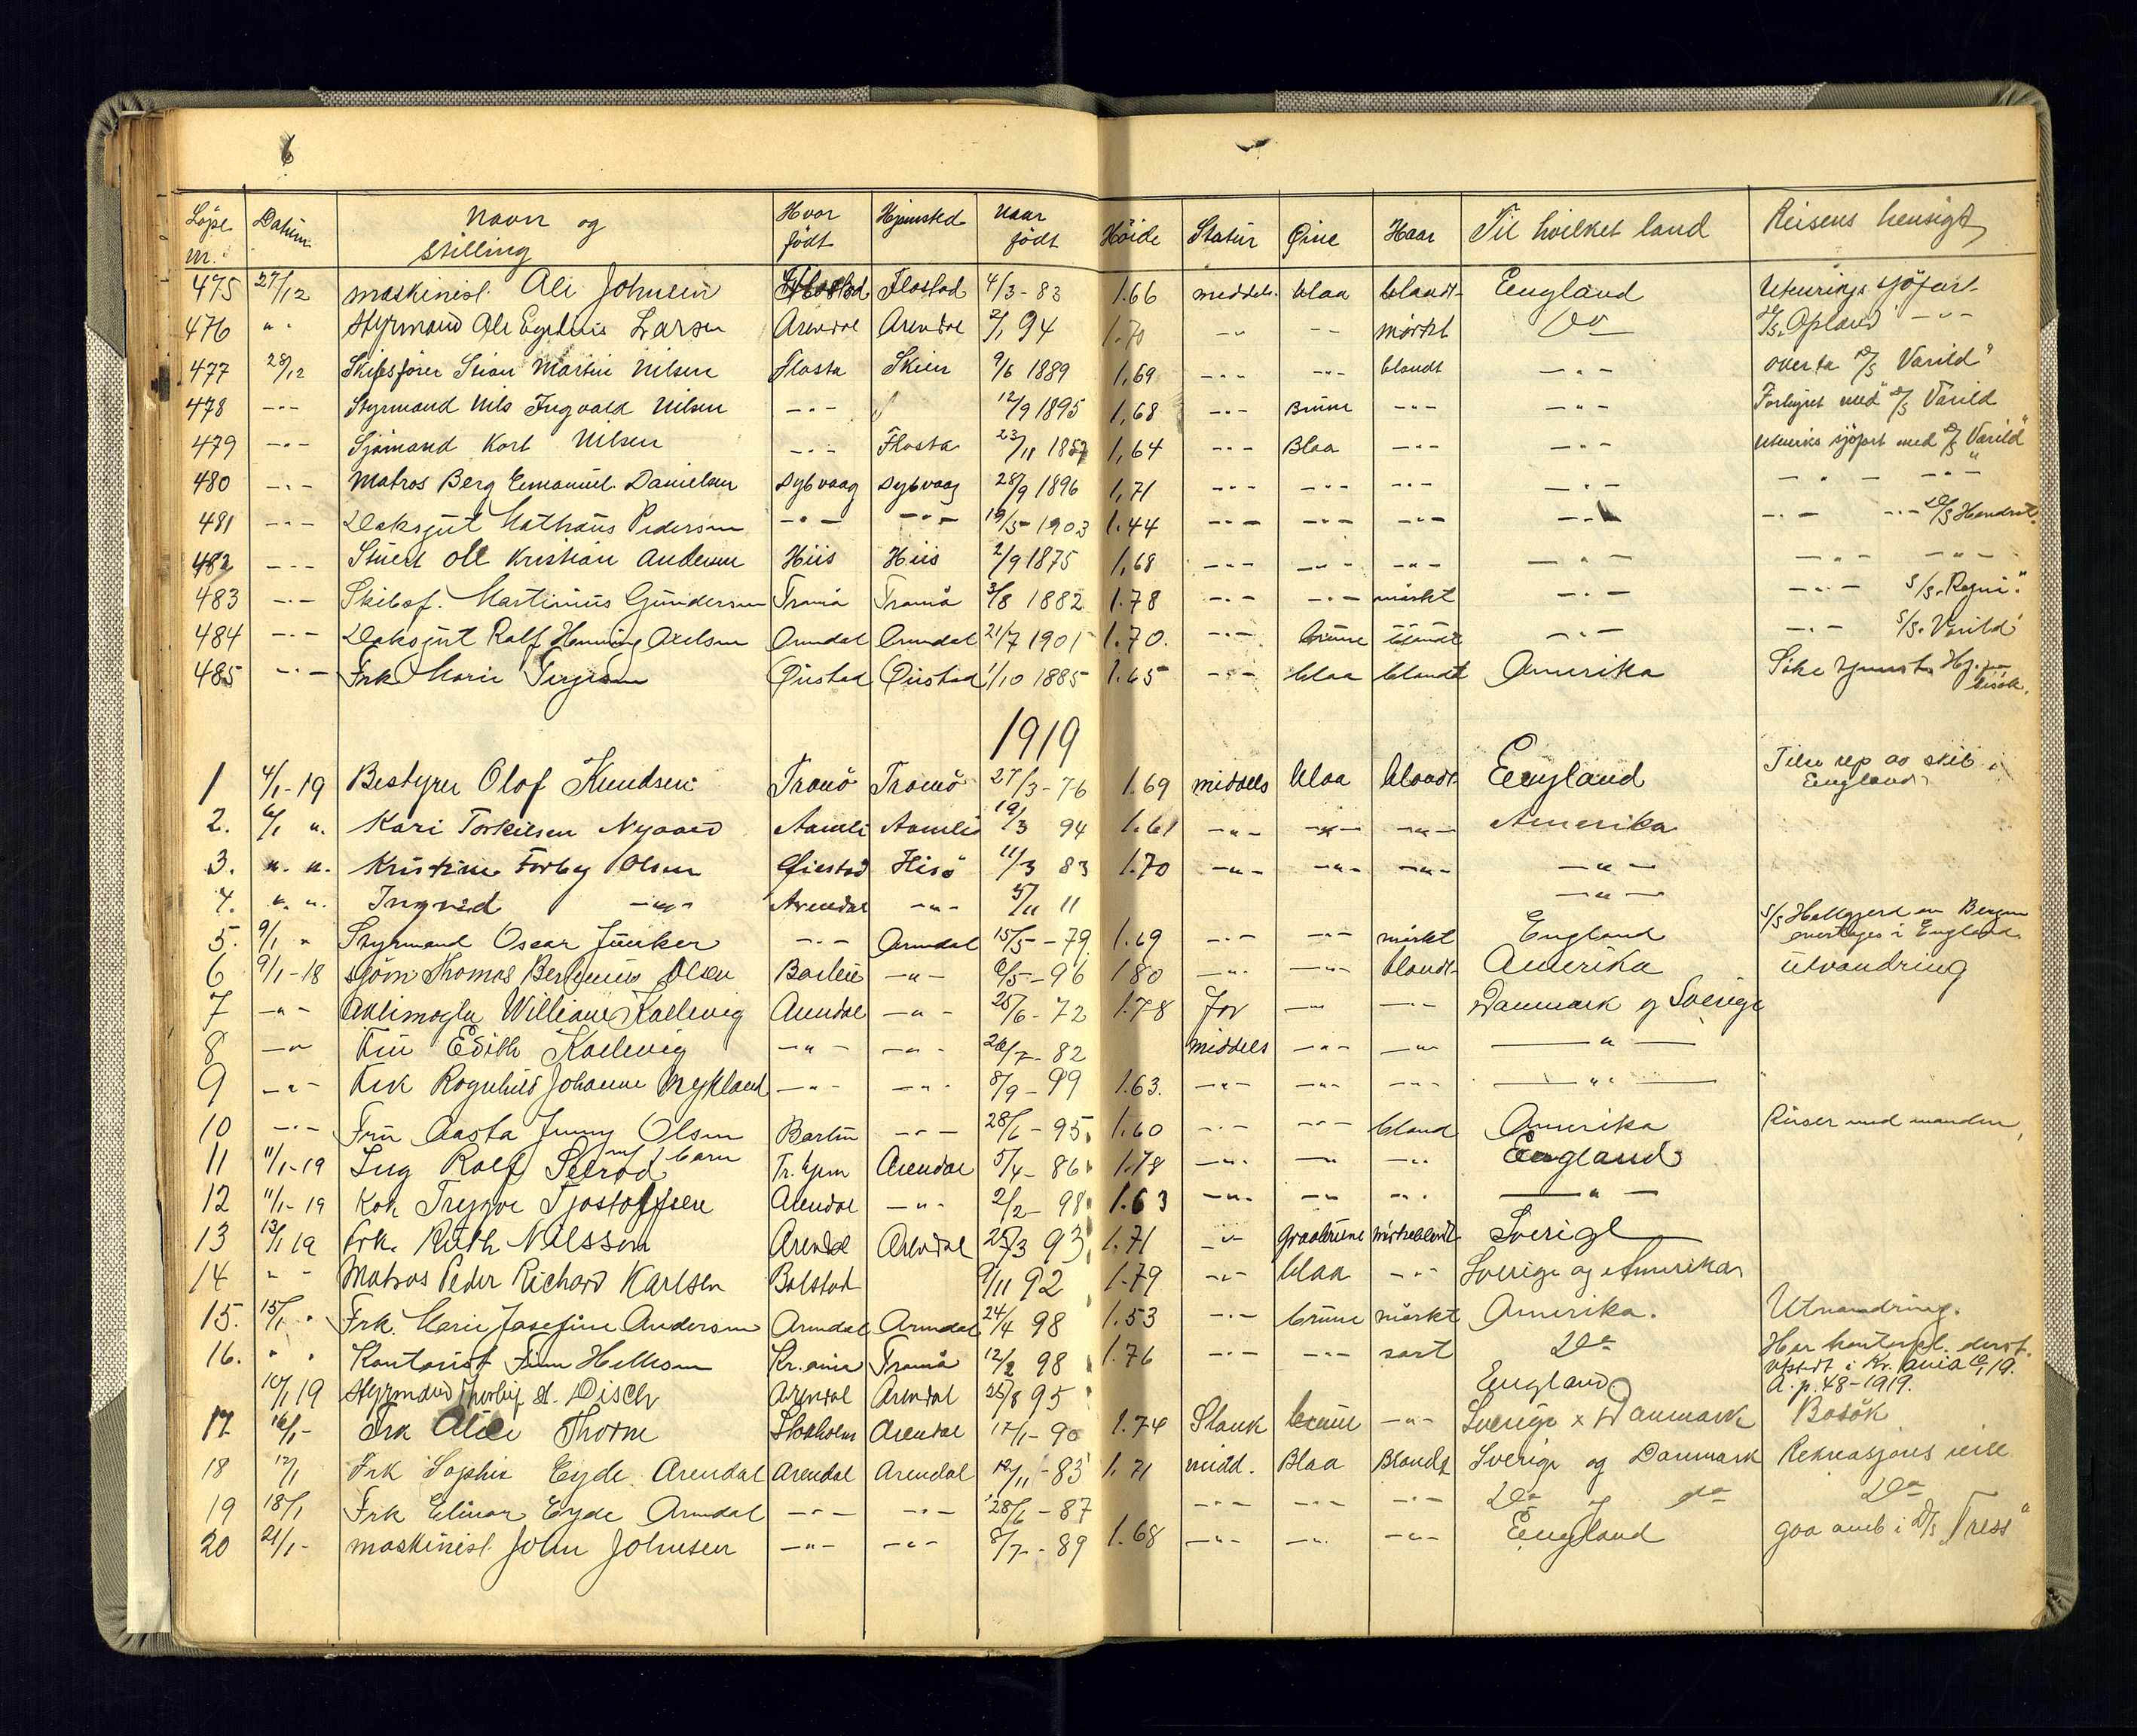 Löpe nr. Datum Navn og stilling Hvor födt Hjemsted Naar födt Höide Statur Öine Haar Til hvilket land Reisens hensigt
475 27/12 maskinist Ole Johnsen Flostad Flostad 4/3-83 1.66 middels blaa blondt England Utenrigs sjöfart
476 " " Styrmand Ole Larsen Arendal Arendal 2/1 94 1.70 -"- -"- mörkt Do D/S Opland -"-
477 28/12 Skibsförer Stian Martin Nilsen Flosta Skien 9/6 1889 1,69 -"- -"- blondt -"- overta D/S Varild"
478 -"- Styrmand Nils Ingvald Nilsen -"- 12/9 1895 1,68 -"- Brune -"- -"- Forhyret med D/S Varild
479 -"- Sjömand Kort Nilsen -"- Flosta 23/11 1,64 -"- Blaa -"- -"- utenriks sjöfart med D/S Varild"
480 -"- Matros Berg Emanuel Danielsen Dybvaag Dybvaag 28/9 1896 1,71 -"- -"- -"- -"- -"- -"-
481 -"- Daksgut Mathæus Pedersen -"- -"- 19/5-1903 1.44 -"- -"- -"- -"- -"- -"- D/S
482 -"- Stuert Ole Kristian Andersen Hiis Hiis 2/9 1875 1,68 -"- -"- -"- -"- -"- -"-
483 -"- Skibsf. Martinius Gundersen Tromö Tromö 3/8 1882 1.78 -"- -"- mörkt -"- -"- S/S "Ragni"
484 -"- Daksgut Rolf Henning Axelsen Arendal Arendal 21/7 1901 1.70. -"- brune blondt -"- -"- S/S. Varild"
485 -"- Frk Marie Terjesen Öiestad Öiestad 1/10 1885 1.65 -"- blaa blondt Amerika Söke tjeneste
1919
1 4/1-19 Bestyrer Olof Knudsen Tromö Tromö 27/3-76 1.69 middels blaa blondt England Tilse rep av skib i England
2. 6/1 " Kari Torkilsen Nygaard Aamli Aamli 19/3 94 1.61 -"- -"- -"- Amerika
3. " " Kristine Torbg Olsen Öiestad Hisö 11/3 83 1.70 -"- -"- -"- -"-
4. " " Ingrid -"- Arendal -"- 5/11 11 -"-
5. 9/1 " Styrmand Oscar Junker -"- Arendal 15/5-79 1.69 -"- -"- mörkt England S/S Hallgjerd av Bergen overtages i England
6 9/1-18 sjöm Thomas Olsen Barbu -"- 6/5-96 1 80 -"- -"- blondt Amerika utvandring
7 -"- William Kallevig Arendal -"- 25/6-72 1.78 for -"- -"- Danmark og Sverige
8 -"- Fru Edith Kallevig -"- -"- 26/7-82 middels -"- -"- -"-
9 -"- Frk Ragnhild Johanne Mykland -"- -"- 8/9-99 1.63. -"- -"- -"- -"-
10 -"- Fru Aasta Jenny Olsen m/ 1 barn Barbu -"- 28/6-95 1.60 -"- -"- blond Amerika Reiser med manden
11 11/1-19 Ing Rolf Selrod Tr.hjem Arendal 5/4-86 1.78 -"- -"- -"- England
12 11/1-19 Kok Trygve Tjostolfsen Arendal -"- 2/2-98 1.63 -"- -"- -"- -"-
13 13/1 19 Frk. Ruth Nilsson Arendal Arendal 25/3 93 1.71 -"- graabrune mörkeblondt Sverige
14 " " Matros Peder Richard Karlsen Bolstad 9/11 92 1.79 -"- blaa -"- Sverige og Amerika
15. 15/1 " Frk. Marie Josefine Andersen Arendal Arendal 24/4 98 1.53 -"- brune mörkt Amerika. Utvandring.
16. " " Kontorist Finn Kr.ania Tromö 12/2 98 1.76 -"- -"- sort Do Har kontorpl. derst.
10/1 19 Styrmand Thorleif A. Disch Arendal Arendal 25/8 95 England A. p. 48-1919.
17 16/1- Frk Alice Thorne Stokholm Arendal 17/1-90 1.74 Slank brune -"- Sverige x Danmark Besök
18 17/1 Frk Sophie Eyde Arendal Arendal Arendal 12/11-83 1.71 midd. Blaa Blondt Sverige og Danmark Rekreasjons reise
19 18/1 Frk Elinor Eyde Arendal -"- -"- 28/6-87 -"- -"- -"- Do og do Do
20 21/1- maskinist John Johnsen -"- -"- 8/7-89 1.68 -"- -"- -"- England gaa omb i D/S "Tress"